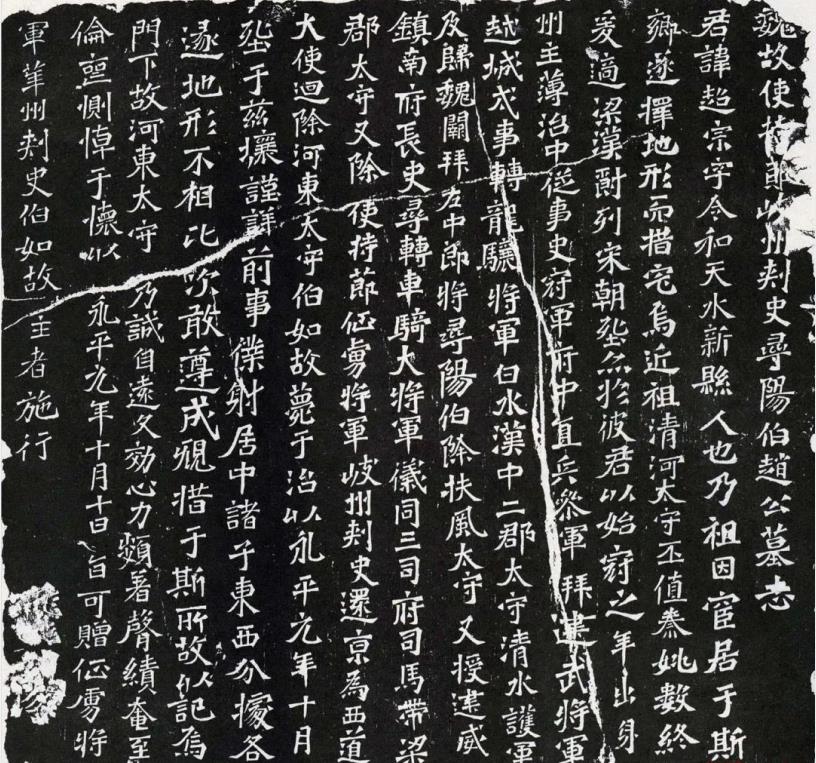 魏故使持節岐州刾史尋陽伯趙公墓志
君諱超宗字令和天水新縣人也乃祖因宦居于斯
鄉遂擇地形而措宅焉近祖清河太守丕值秦姚數終
爰適梁漢爵列宋朝埊於彼君以始冠之年出身
州主薄治中從事史冠軍府中直兵參軍拜建武將軍
越城戍事轉龍驤將軍白水漢中二郡太守清水護軍
及歸魏闕拜左中郎將尋陽伯除扶風太守又授建威
鎮南府長史尋轉車騎大將軍儀同三司府司馬帶梁
郡太守又除使持節征虜將軍岐州刾史還京為西道
大使迴除河東太守伯如故薨于治以永平元年十月
埊于茲壤謹詳前事僕射居中諸子東西分據各
逐地形不相比次敢遵成規措于斯所故以記焉
門下故河東太守 乃誠自遠久効心力頻著聲績奄至
倫惻悼于懷以 永平元年十月十日 旨可贈征虜將
軍華州刾史伯如故 主者施行